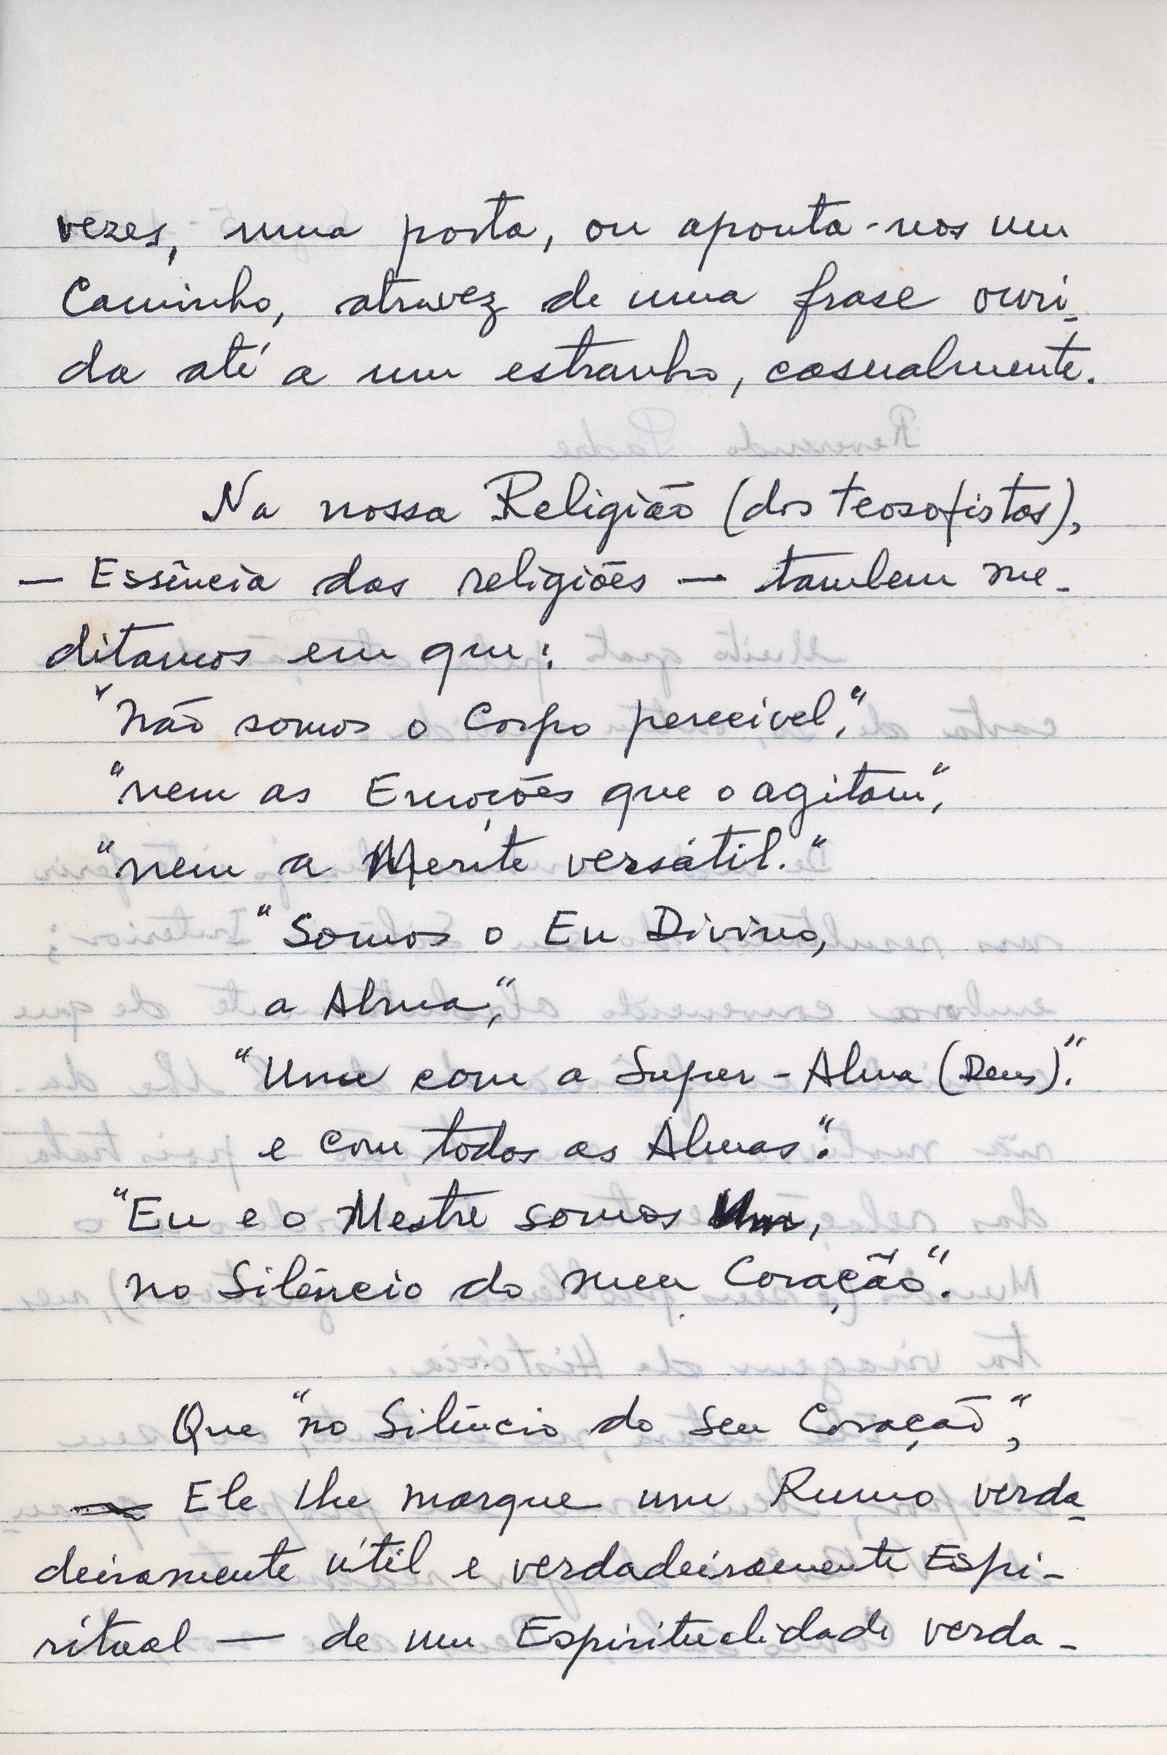 vezes, uma porta, ou aponta-nos um
Caminho, atravez de uma frase ouvi-
da até a um estranho, casualmente.
Na nossa Religião (dos teosofistas),
— Essência das religiões — tambem me-
ditamos em que:
"Não somos o Corpo perceivel",
"nem as Emoções que o agitam",
"nem a Mente versátil."
"Somos o Eu Divino,
a Alma",
"Uma com a Super-Alma (Deus)".
e com todas as Almas".
"Eu e o Mestre somos Um,
no Silêncio do meu Coração".
Que "no Silêncio do Seu Coração",
Ele lhe marque um Rumo verda-
deiramente útil e verdadeiramente Espi-
ritual — de uma Espiritualidade verda-